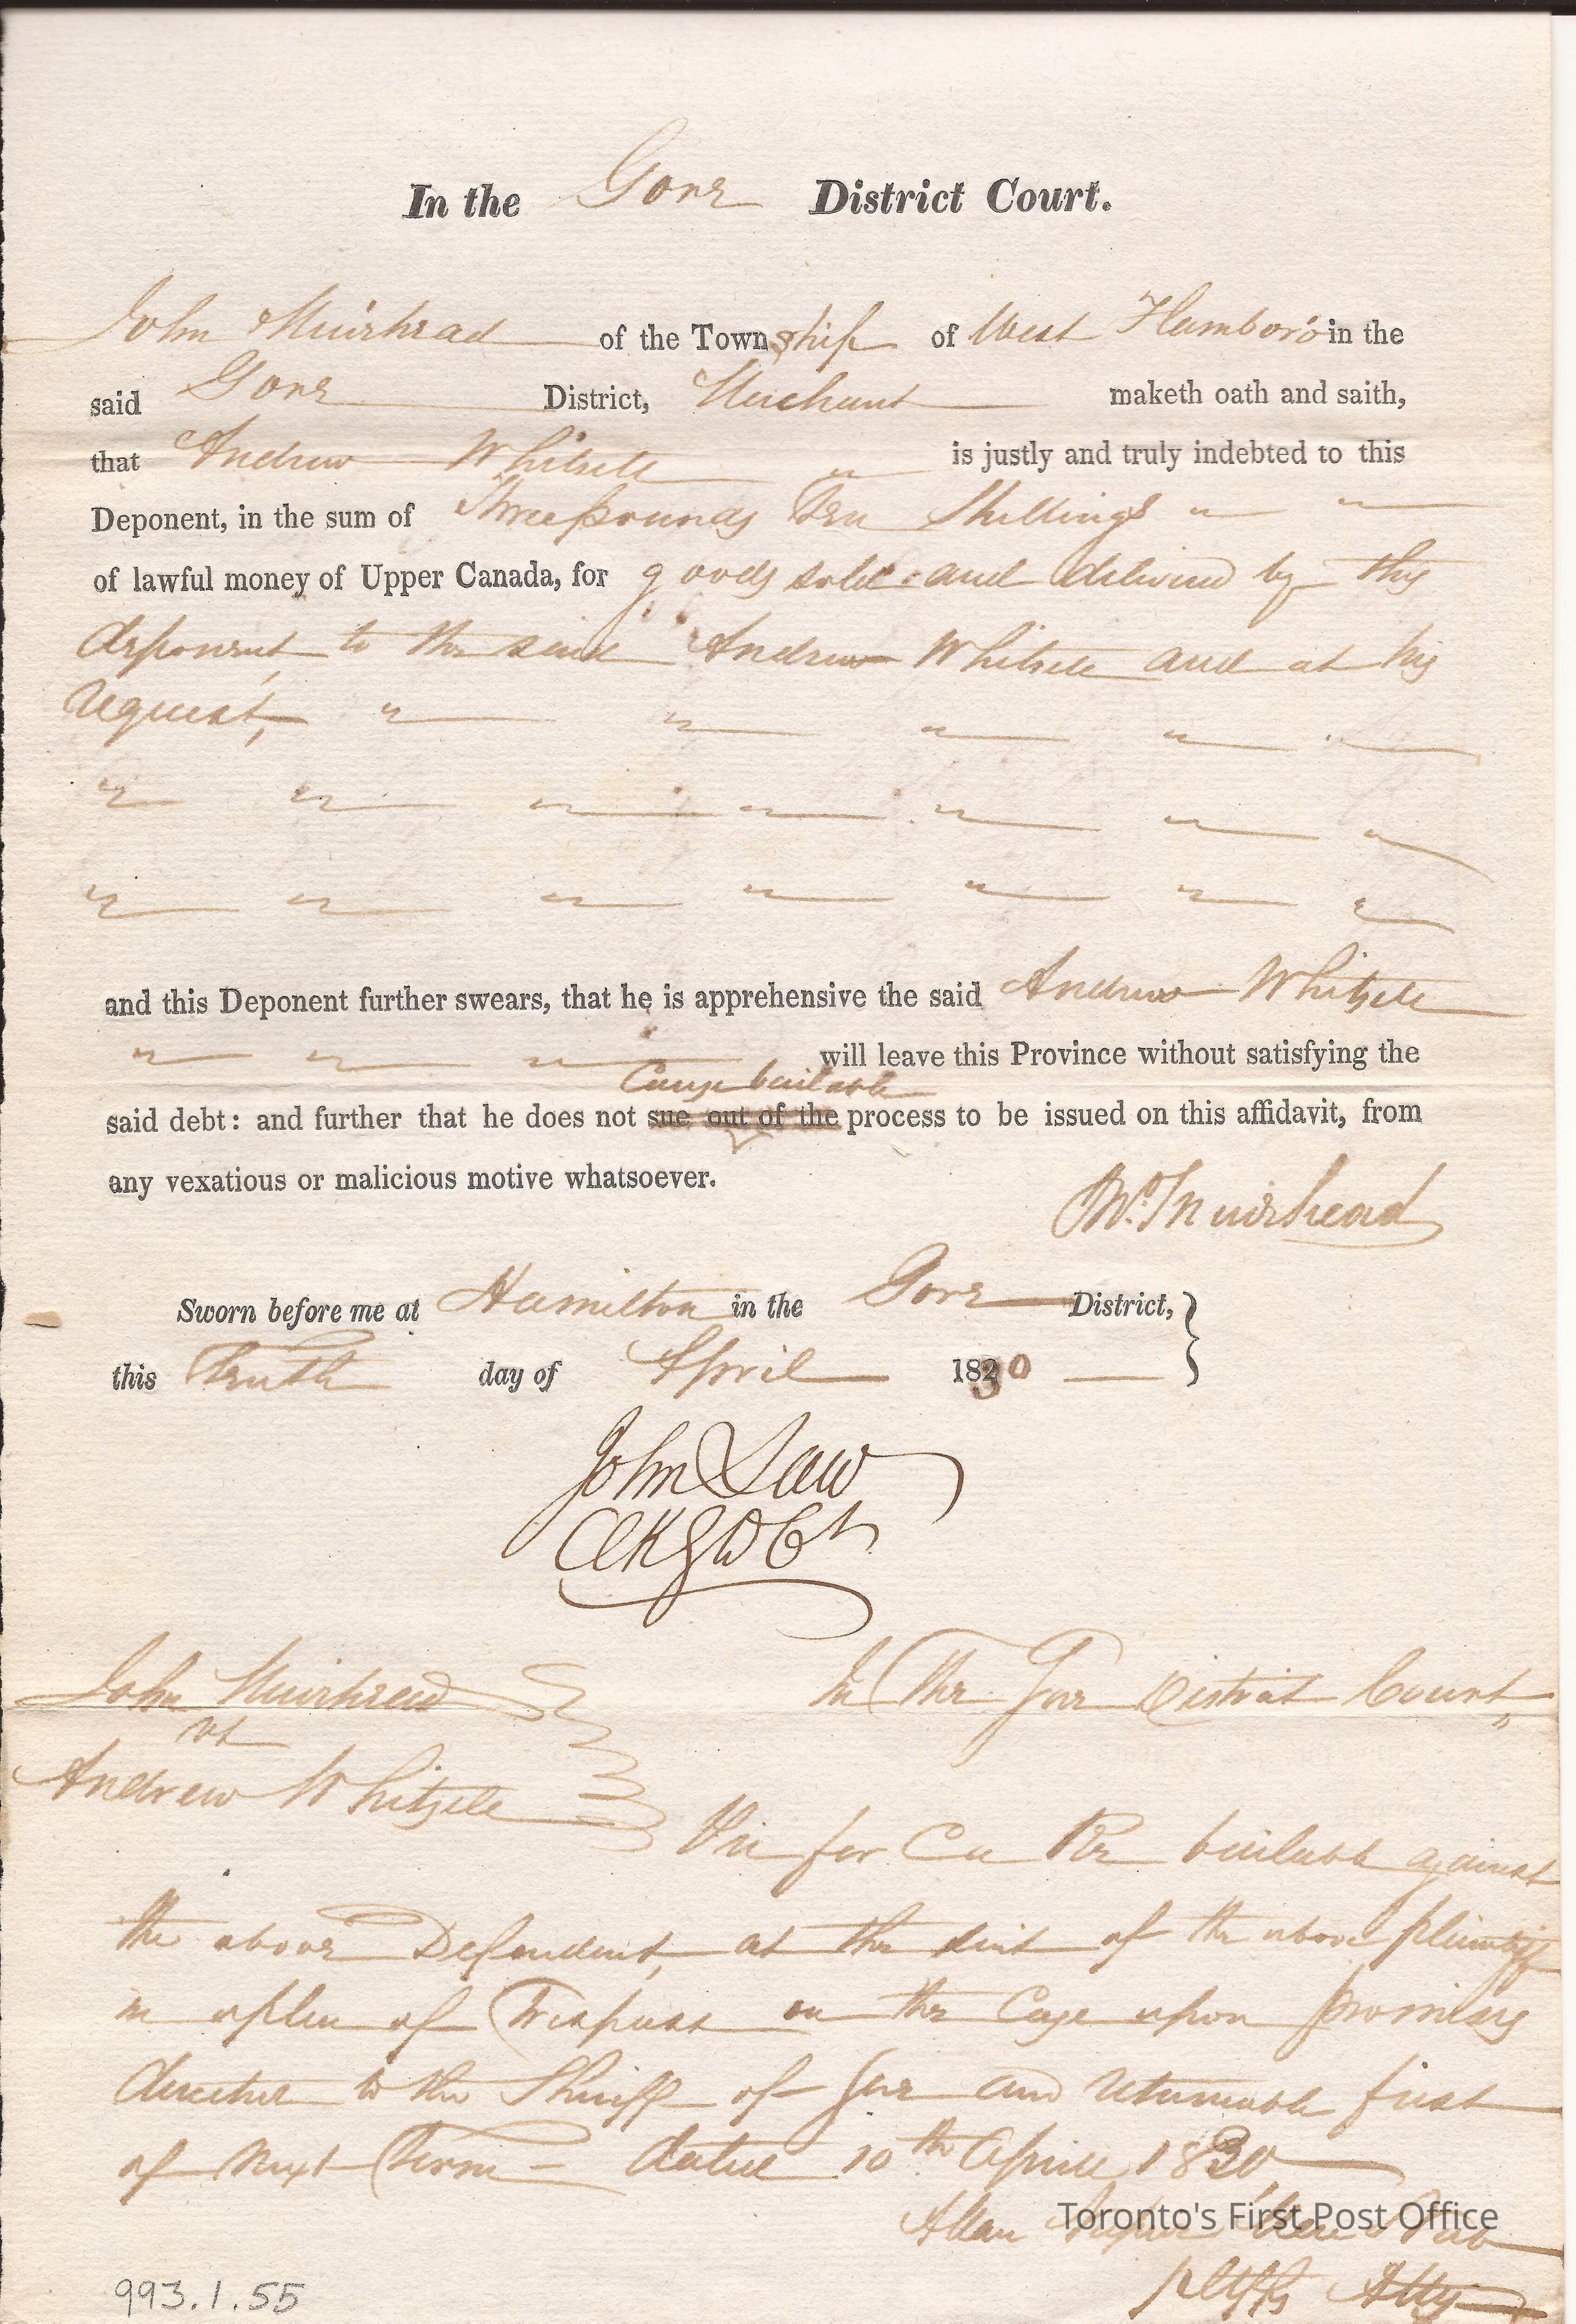 In the Gore District Court.
John Muirhead of the Township of West Flamboro' in the
said Gore District, Merchant maketh oath and saith,
that Andrew Whitsele is justly and truly indebted to this
Deponent, in the sum of Three pounds Ten Shillings
of lawful money of Upper Canada, for goods sold and delivered by this
deponent to the said Andrew Whitsele and at his
request,
and this Deponent further swears, that he is apprehensive the said Andrew Whitsele
will leave this Province without satisfying the
Cause bailable
said debt: and further that he does not sue out of the process to be issued on this affidavit, from
any vexatious or malicious motive whatsoever.
Muirhead
Sworn before me at Hamilton in the Gore District,
this Tenth day of April 1830
John Law
Clk G D Ct
John Muirhead
In The Gore District Court,
vs
Andrew Whitsele
for Ca Re bailable against
the above Defendant, at the suit of the above plaintiff
in a plea of Trespass on the Case upon promises
directed to the Sheriff of Gore and returnable first
of next Term - dated 10th April 1830
Allan
Pltffs Atty
Toronto's First Post Office
993.1.55